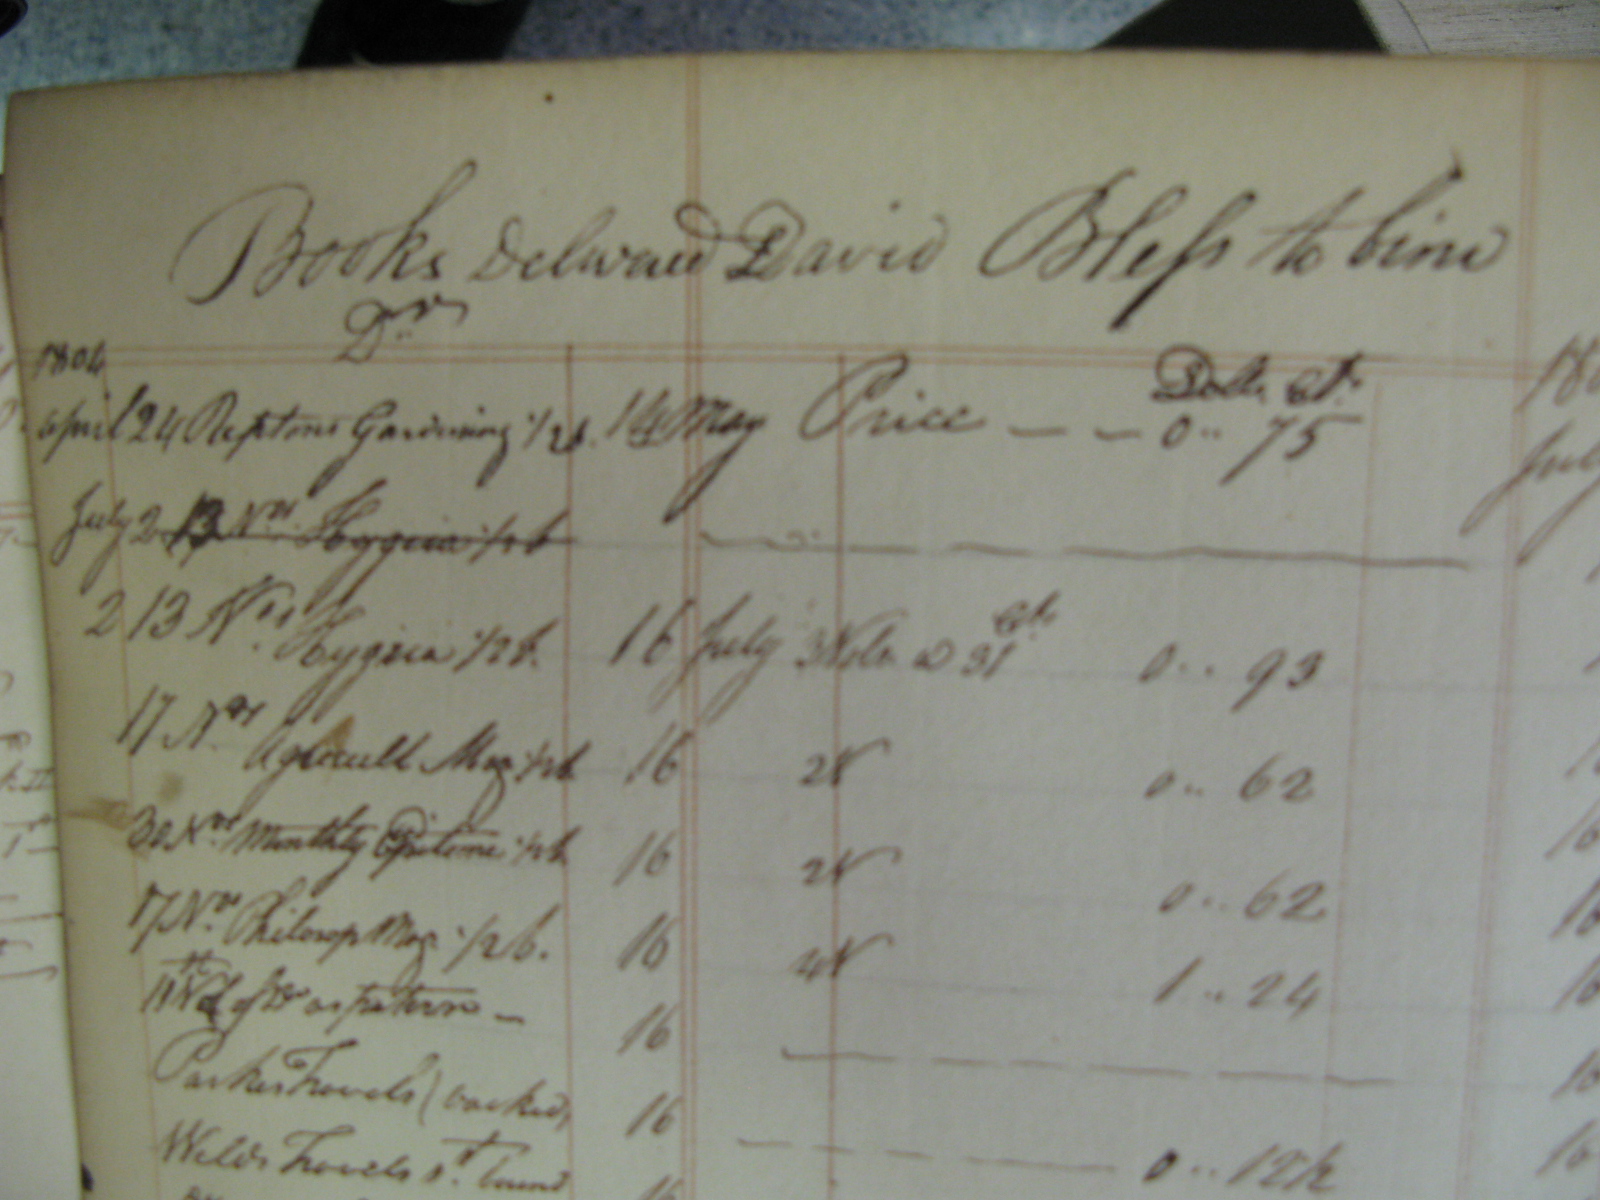 Books Delivered David Bless to bind
Dr
1804 Dolls Cts
April 24 Reptons Gardining 1/2 b. 14 May Price — — 0 .. 75
July 2 13 Nos. Hygeia 1/2 b
2 13 Nos. Hygeia 1/2 b. 16 July 3 Vols @ 31 Cts 0 .. 93
17 Nos. Agricult Mag 1/2 b 16 2 V 0 .. 62
30 Nos. Monthly Epitome 1/2 b 16 2 V 0 .. 62
17 Nos. Philosop Mag 1/2 b. 16 4 V 1 .. 24
11th Vol of Do as pattern — 16
Parkes Travels (backed) 16
Welds Travels bound 16 0 .. 12½